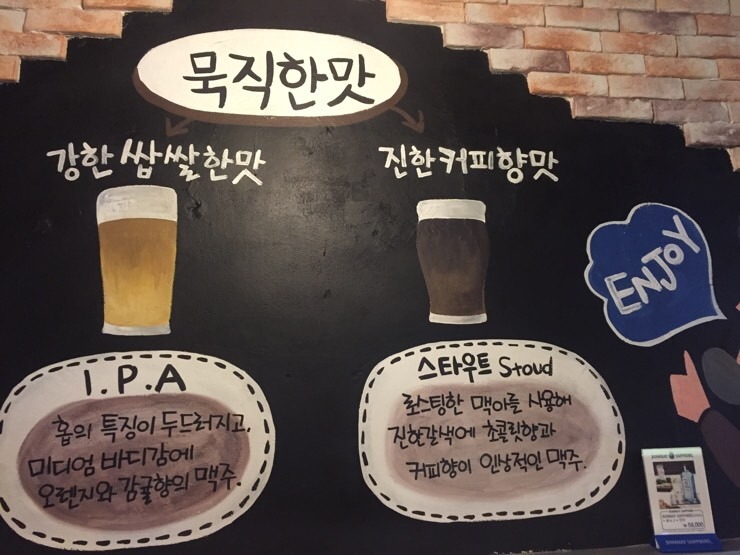 묵직한맛
강한 쌉쌀한맛
진한커피향맛
ENJOY
I.P.A
홉의 특징이 두드러지고,
미디엄 바디감에
오렌지와 감귤향의 맥주.
스타우트 Stoud
로스팅한 맥아를 사용해
진한갈색에 초콜릿향과
커피향이 인상적인 맥주.
BOMBAY SAPPHIRE